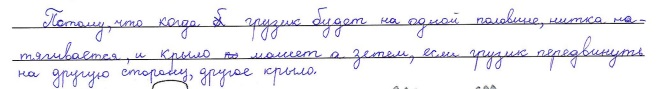 Потому, что когда грузик будет на одной половине, нитка на-
тягивается, и крыло может а затем, если грузик передвинуть
на другую сторону, другое крыло.